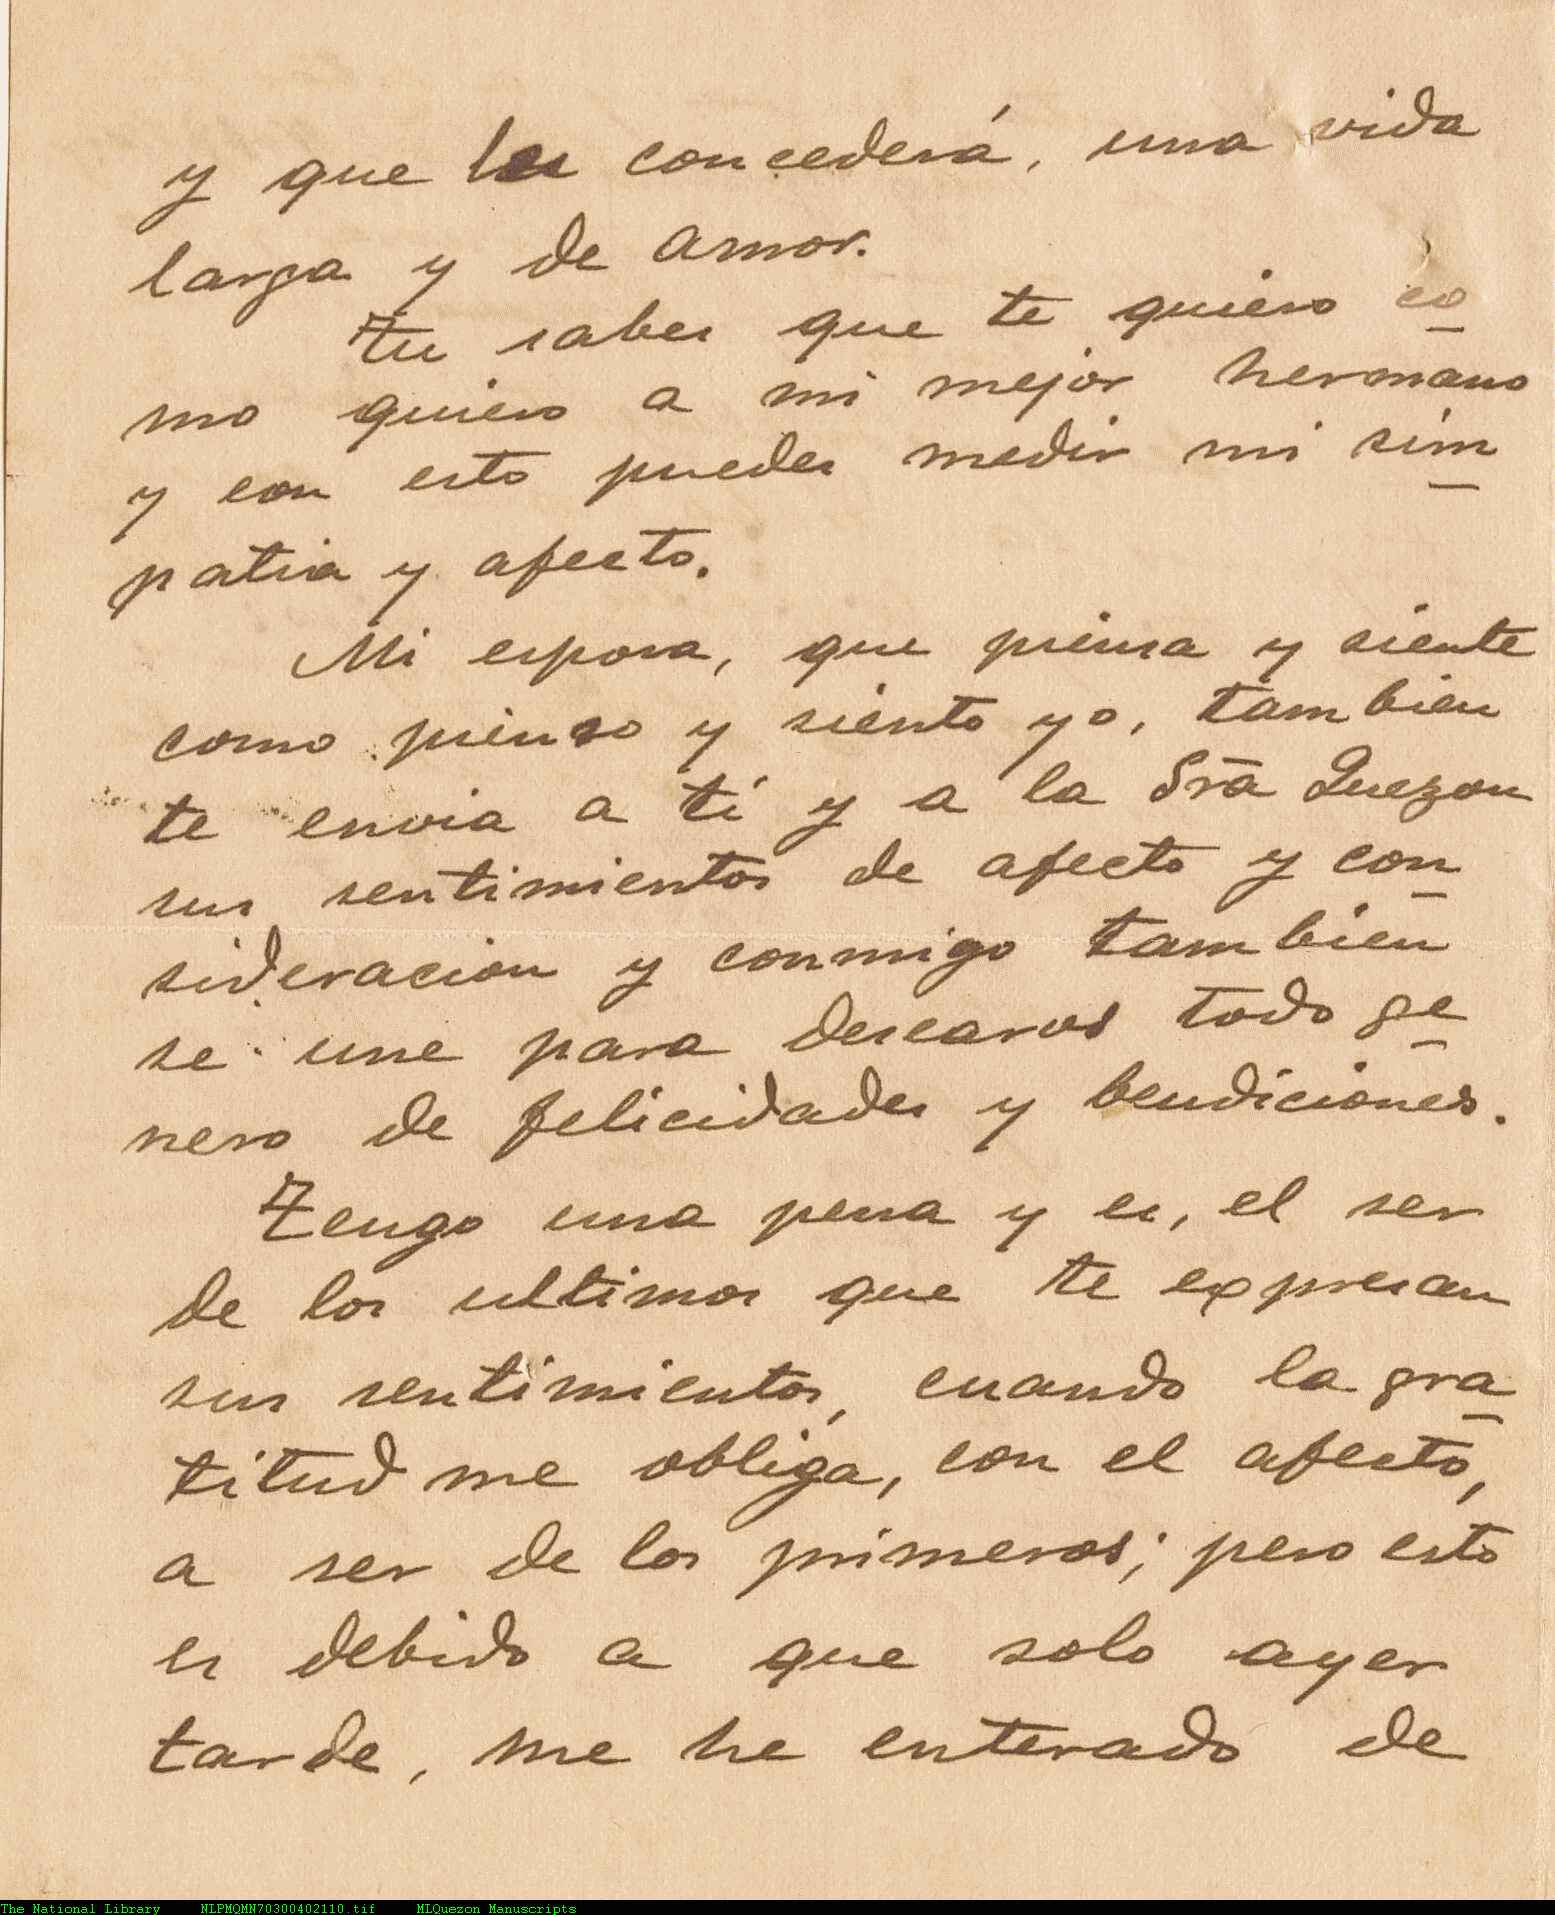 y que les concederá, una vida
larga y de amor.
Tu sabes que te quiero co
mo quiero a mi mejor hermano
y con esto puedes medir mi sim
patia y afecto.
Mi esposa, que piensa y siente
como pienso y siento yo, tambien
te envia a tí y a la Sra Quezon
sus sentimientos de afecto y con
sideracion y conmigo tambien
se une para desearos todo ge
nero de felicidades y bendiciones.
Tengo una pena y es, el ser
de los ultimos que te expresan
sus sentimientos, cuando la gra
titud me obliga, con el afecto,
a ser de los primeros; pero esto
es debido a que solo ayer
tarde, me he enterado de
The National Library NLPMQMN70300402110.tif MLQuezon Manuscripts